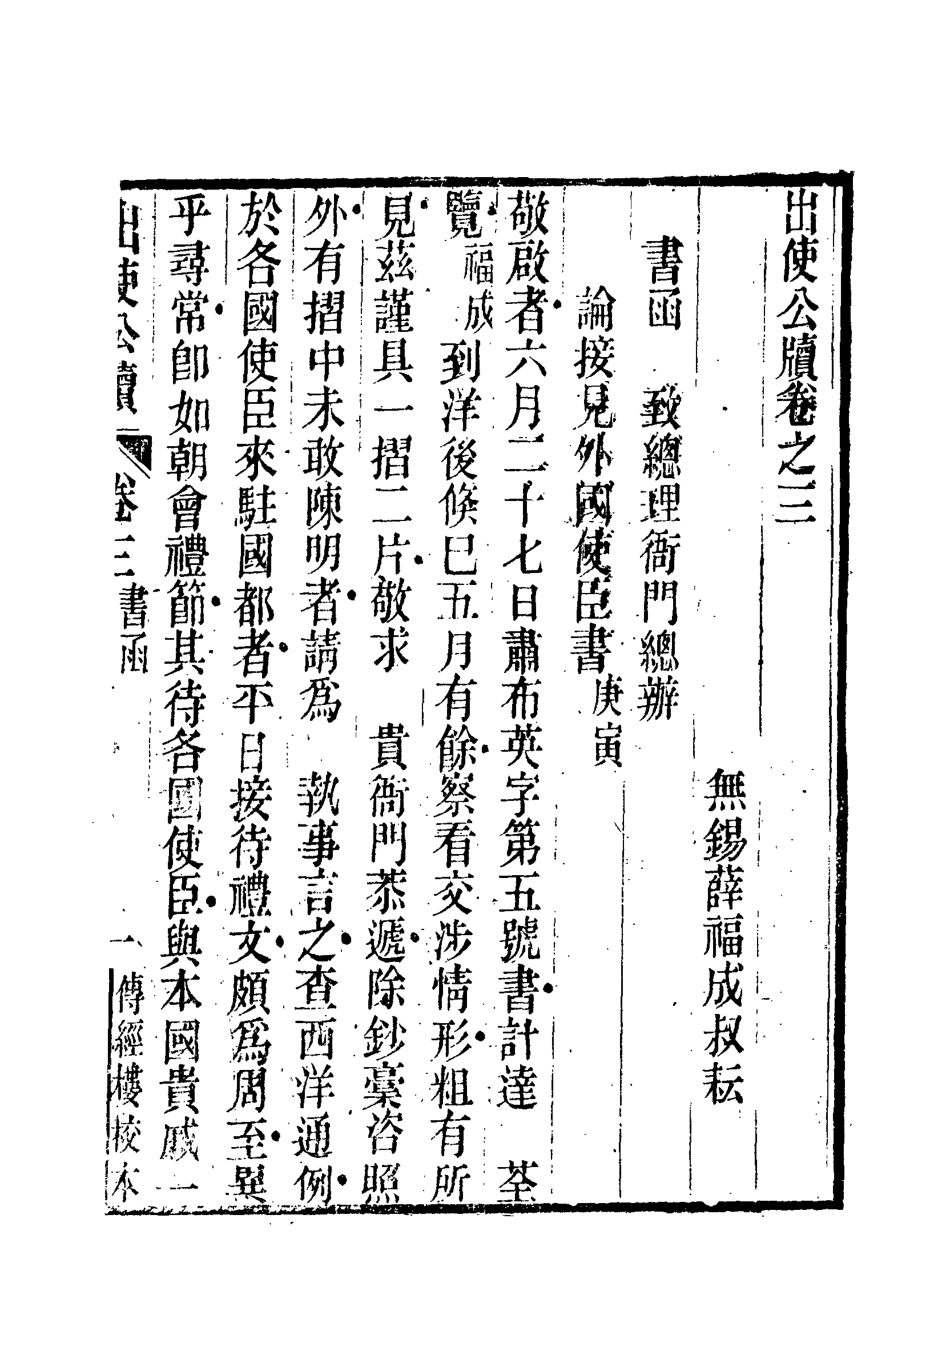 出使公牘卷之三
無錫薛福成叔耘
書函　致總理衙門總辦
論接見外國使臣書庚寅
敬啟者六月二十七日肅布英字第五號書計達　荃
覽福成到洋後倏已五月有餘察看交涉情形粗有所
見茲謹具一摺二片敬求　貴衙門恭遞除鈔稾咨照
外有摺中未敢陳明者請爲　執事言之查西洋通例
於各國使臣來駐國都者平日接待禮文頗爲周至異
乎尋常卽如朝會禮節其待各國使臣與本國貴戚一
出使公牘　卷三書函　一　傳經樓校本